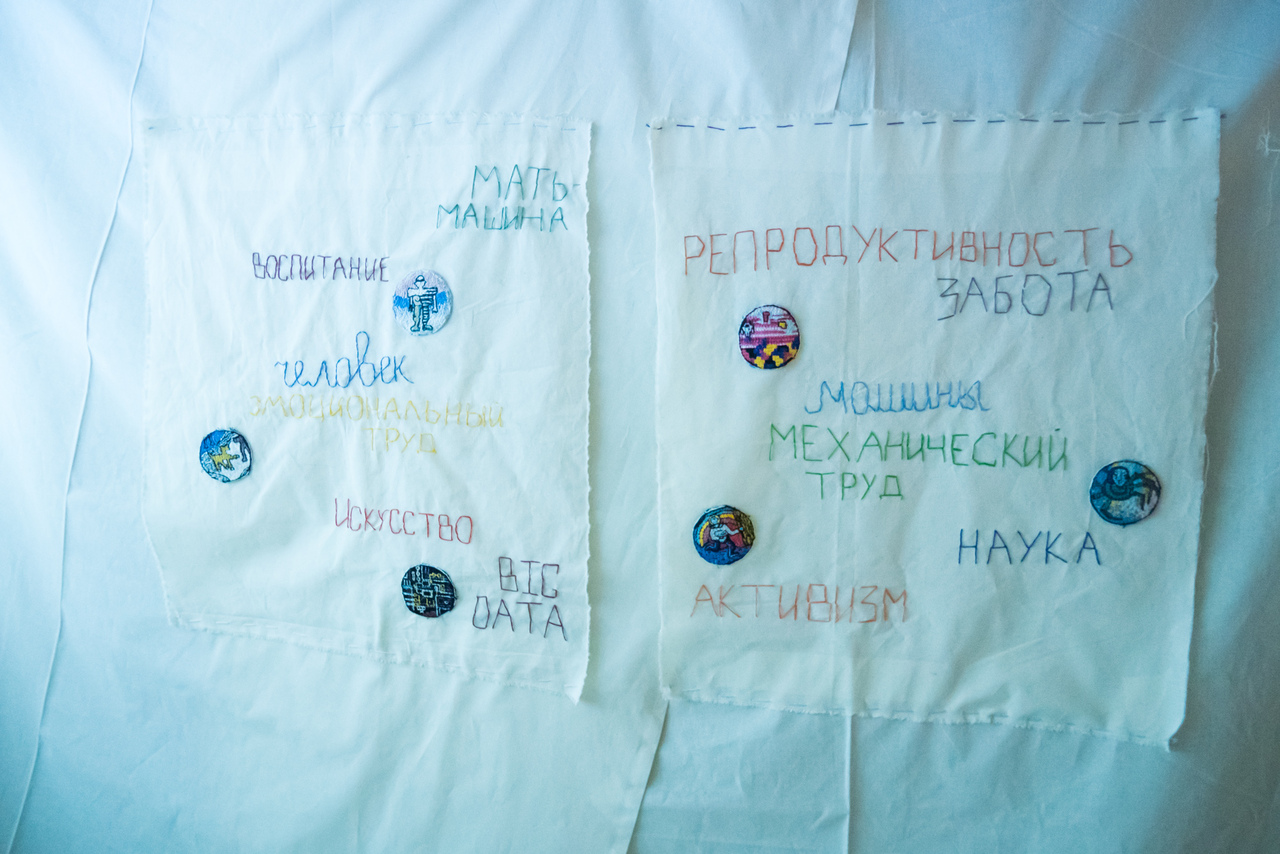 МАТЬ-
МАШИНА
ВОСПИТАНИЕ
человек
ЭМОЦИОНАЛЬНЫЙ
ТРУД
ИСКУССТВО
BIG
DATA
РЕПРОДУКТИВНОСТЬ
ЗАБОТА
машины
МЕХАНИЧЕСКИЙ
ТРУД
НАУКА
АКТИВИЗМ